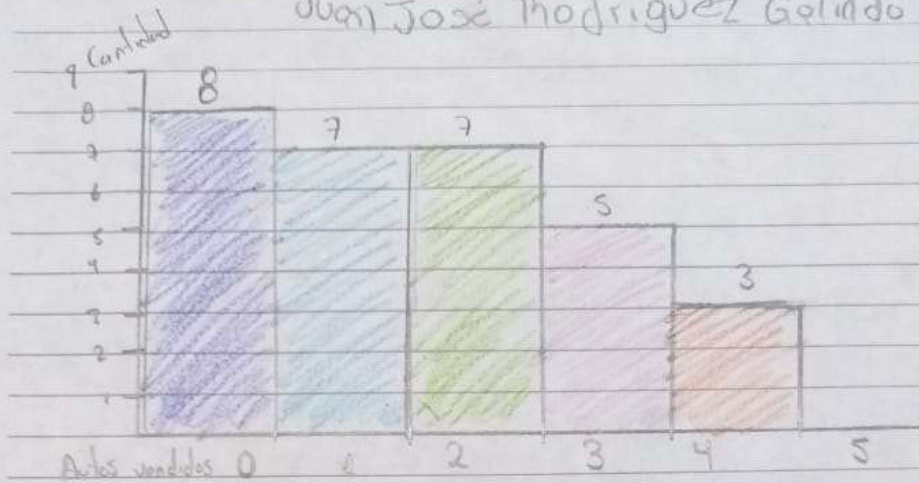 Juan José Rodriguez Galindo
Cantidad
9
8
7
6
5
4
3
2
1
8
7
7
5
3
Autos vendidos 0 1 2 3 4 5